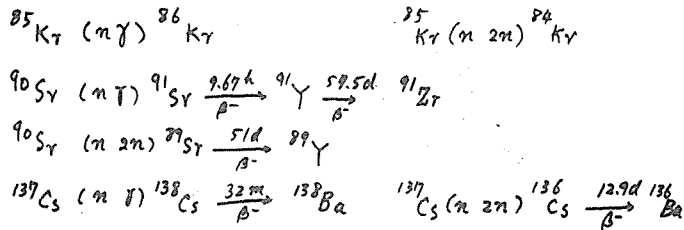 ⁸⁵Kr (n γ) ⁸⁶Kr ⁸⁵Kr (n 2n) ⁸⁴Kr
⁹⁰Sr (n γ) ⁹¹Sr 9.67h β⁻ → ⁹¹Y 59.5d β⁻ → ⁹¹Zr
⁹⁰Sr (n 2n) ⁸⁹Sr 51d β⁻ → ⁸⁹Y
¹³⁷Cs (n γ) ¹³⁸Cs 32m β⁻ → ¹³⁸Ba ¹³⁷Cs (n 2n) ¹³⁶Cs 12.9d β⁻ → ¹³⁶Ba